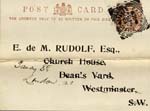 POST CARD
THE ADDRESS ONLY TO BE WRITTEN ON THIS SIDE
E. de M. RUDOLF, Esq.,
Church House,
Dean's Yard,
Westminster,
S.W.